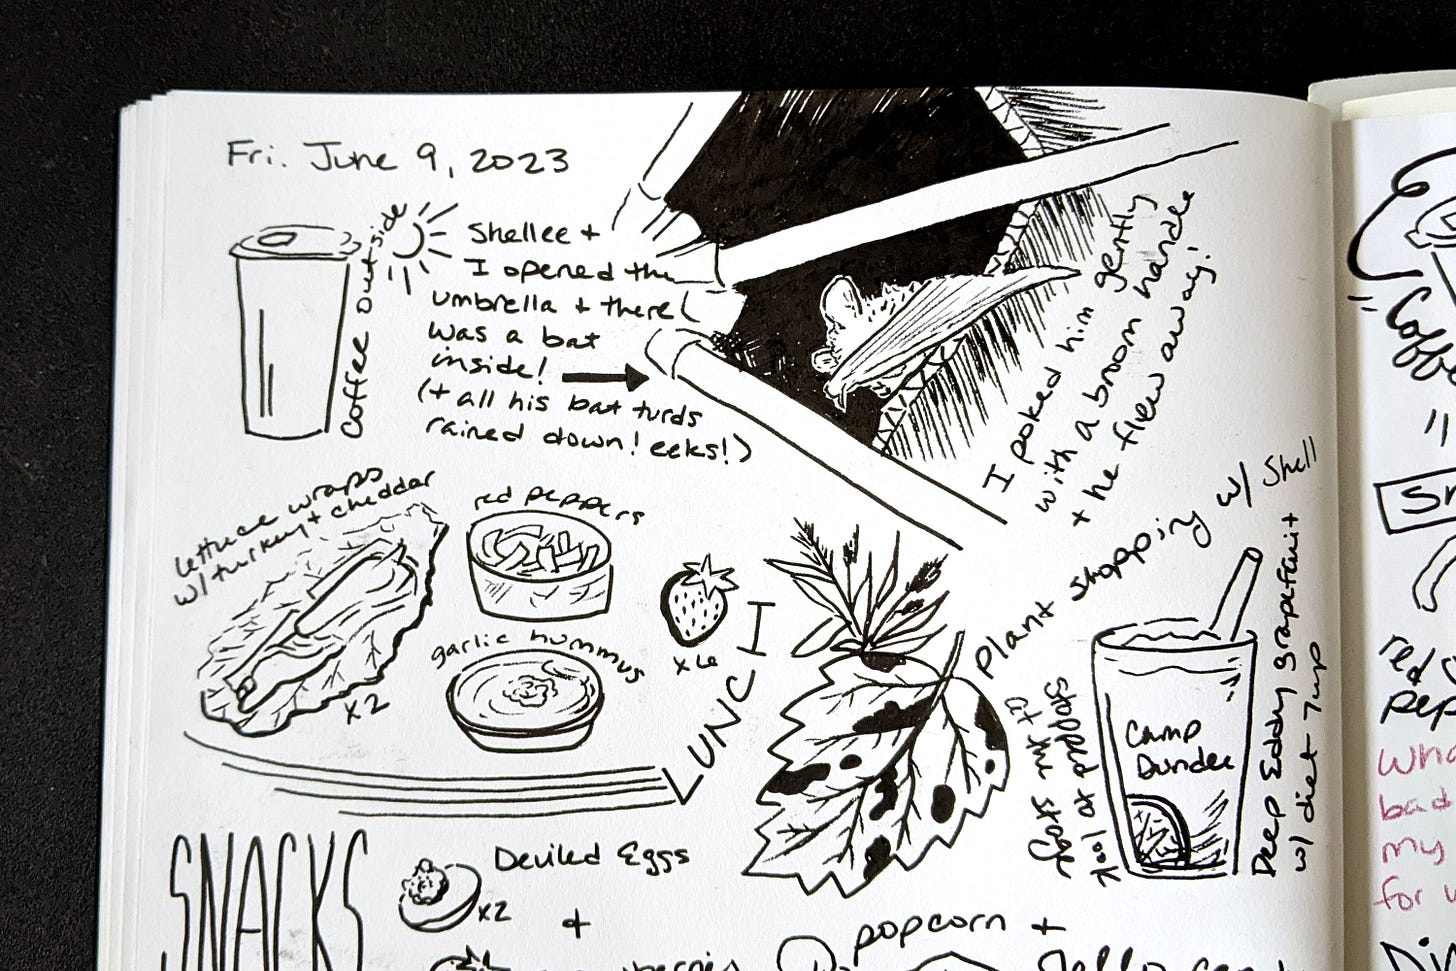 Fri. June 9, 2023
Coffee outside
Shellee +
I opened the
umbrella + there
was a bat
inside!
(+ all his bat turds
rained down! eeks!)
I poked him gently
with a broom handle
+ he flew away!
lettuce wraps
w/ turkey + cheddar
x2
red peppers
garlic hummus
x6
LUNCH
Plant shopping w/ Shell
Camp
Dundee
Deep Eddy grapefruit
w/ diet 7up
SNACKS
Deviled Eggs
x2
+
popcorn +
Coffee
=
red
pep
bad
my
for